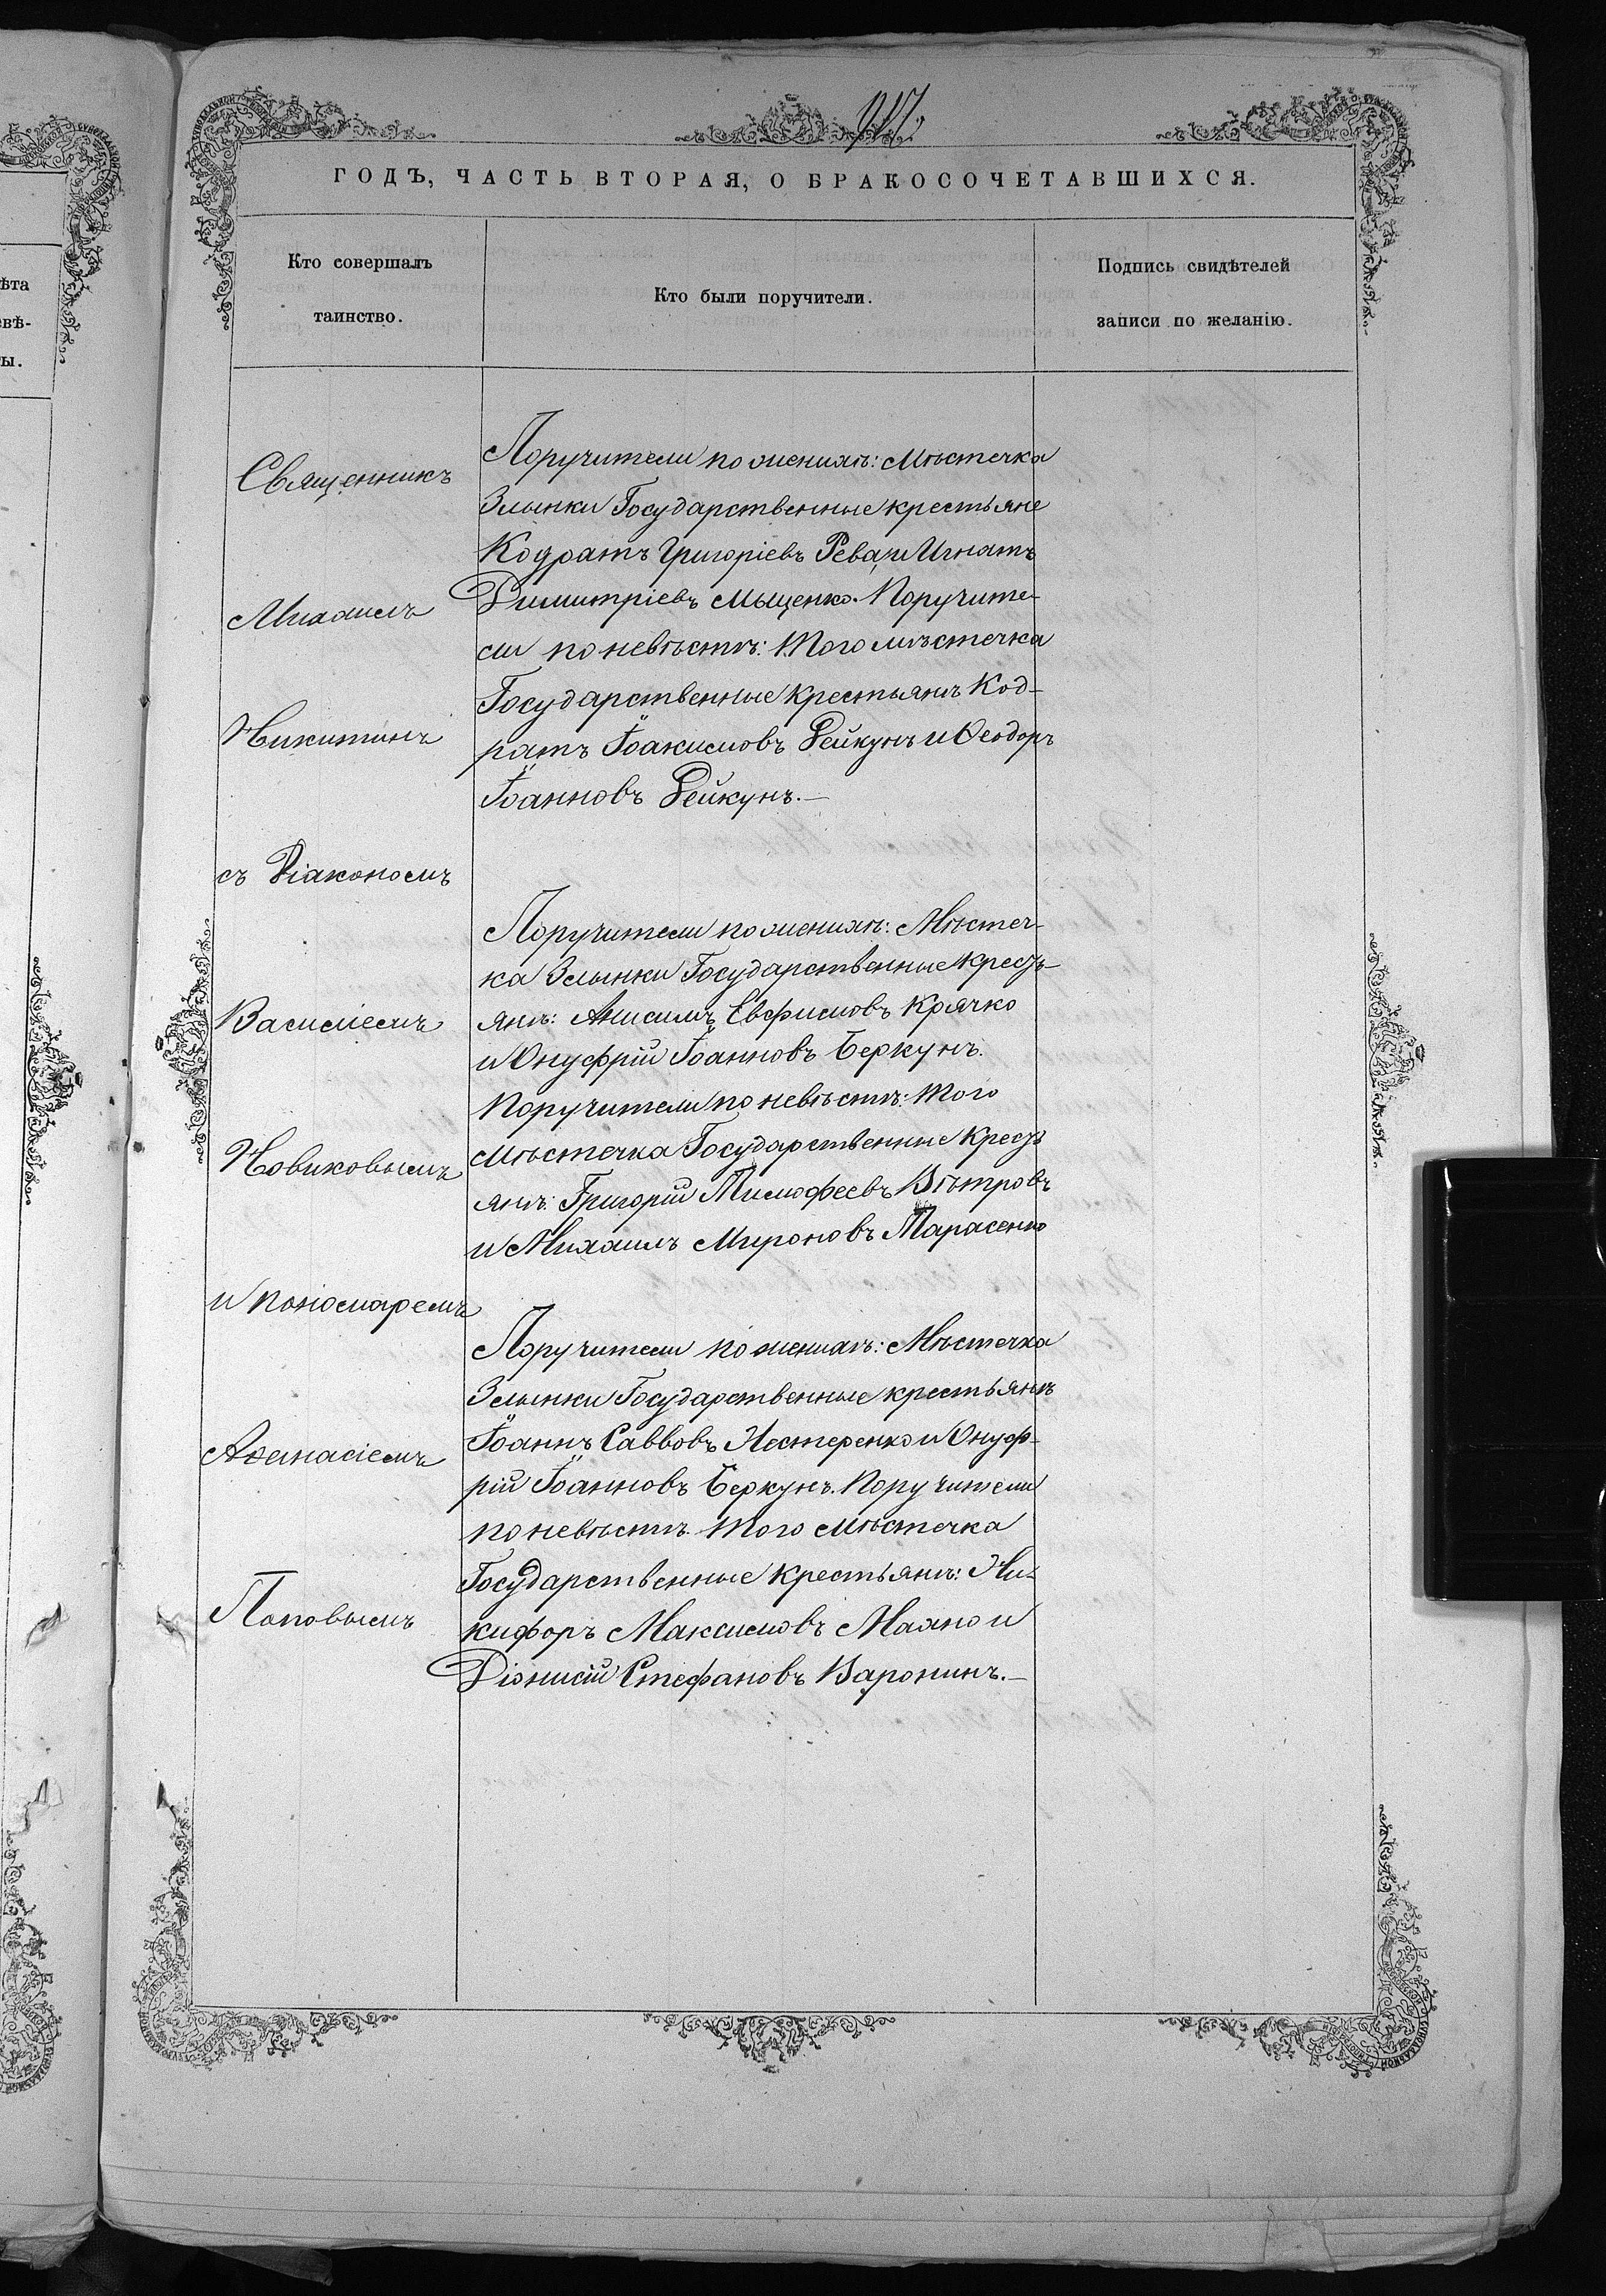 ГОДЪ, ЧАСТЬ ВТОРАЯ, О БРАКОСОЧЕТАВШИХСЯ.
Кто совершалъ
таинство.
Кто были поручители.
Подпись свидѣтелей
записи по желанію.
Священникъ
Михаилъ
Никитинъ
съ Діакономъ
Василіемъ
Новиковымъ
и пономаремъ
Аѳанасіемъ
Поповымъ
Поручители по женихѣ: мѣстечка
Злынки Государственные крестьяне
Кодратъ Григоріевъ Рева, и Игнатъ
Димитріевъ Мыценко. Поручите-
ли по невѣстѣ: Того мѣстечка
Государственные крестьянѣ Код-
ратъ Іоакимовъ Дейкунъ и Ѳеодоръ
Іоанновъ Дейкунъ.—
Поручители по женихѣ: Мѣстеч-
ка Злынки Государственные кресть-
янѣ: Анисимъ Евфимовъ Крячко
и Онуфрій Іоанновъ Беркунъ.
Поручители по невѣстѣ: Того
мѣстечка Государственные кресть
янѣ: Григорій Тимофеевъ Вѣтровъ
и Михаилъ Мироновъ Тарасенко
Поручители по женихѣ: Мѣстечка
Злынки Государственные крестьянѣ
Іоаннъ Саввовъ Нестеренко и Онуф-
рій Іоанновъ Беркунъ. Поручители
по невѣстѣ. Того мѣстечка
Государственные крестьянѣ: Ни-
кифоръ Максимовъ Маяно и
Діонисій Стефановъ Варонинъ.—
ѣта
евѣ-
ы.